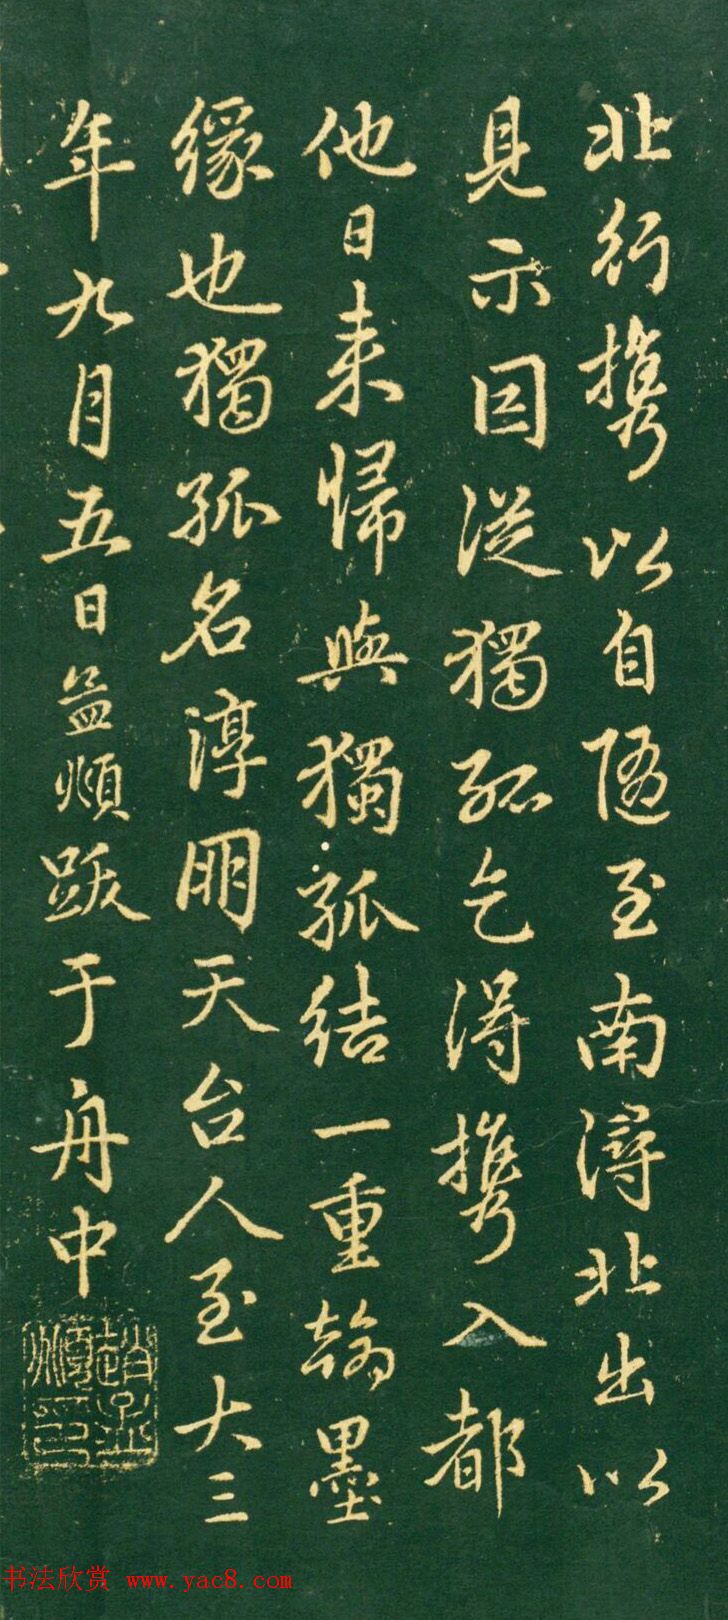 北行攜以自随至南潯北出以
見示因従獨孤乞得攜入都
他日来歸與獨孤結一重翰墨
縁也獨孤名淳朋天台人至大三
年九月五日孟頫跋于舟中
趙孟頫印
书法欣赏 www.yac8.com